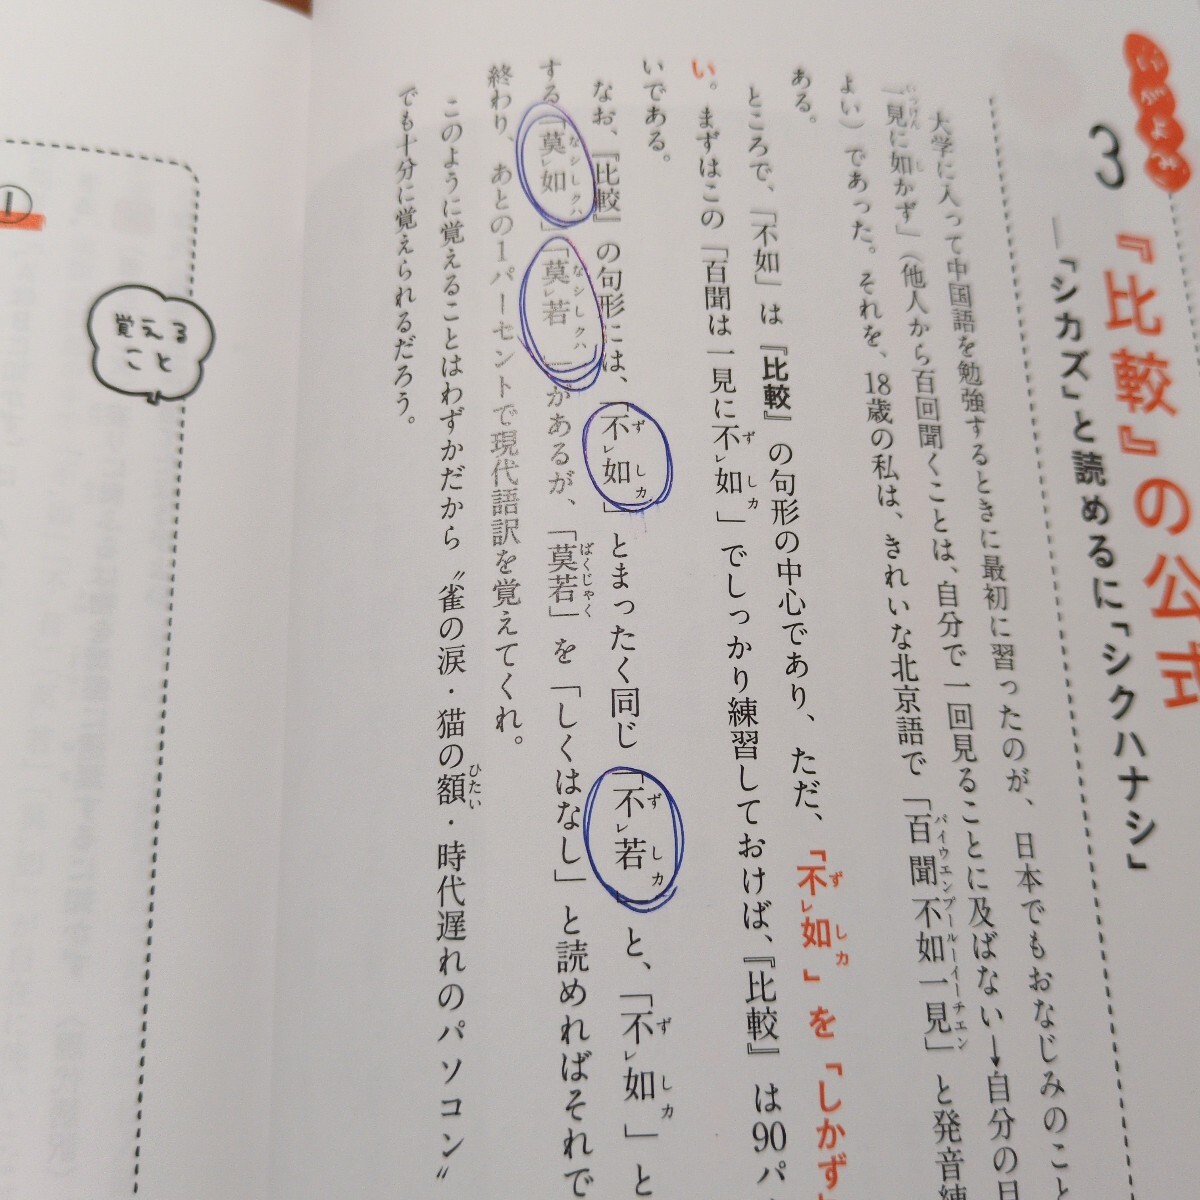 いがよみ
3
『比較』の公式
―「シカズ」と読めるに「シクハナシ」
大学に入って中国語を勉強するときに最初に習ったのが、日本でもおなじみのこと
一見に如かず」（他人から百回聞くことは、自分で一回見ることに及ばない→自分の目
よい）であった。それを、18歳の私は、きれいな北京語で「百聞不如一見」と発音練
ある。
ところで、「不如」は『比較』の句形の中心であり、ただ、「不レ如」を「しかず」
い。まずはこの「百聞は一見に不レ如」でしっかり練習しておけば、『比較』は90パ
いである。
なお、『比較』の句形には、「不レ如」とまったく同じ「不レ若」と、「不レ如」と
する「莫レ如」「莫レ若」があるが、「莫若」を「しくはなし」と読めればそれで
終わり、あとの1パーセントで現代語訳を覚えてくれ。
このように覚えることはわずかだから〝雀の涙・猫の額・時代遅れのパソコン〟
でも十分に覚えられるだろう。
覚えること
1